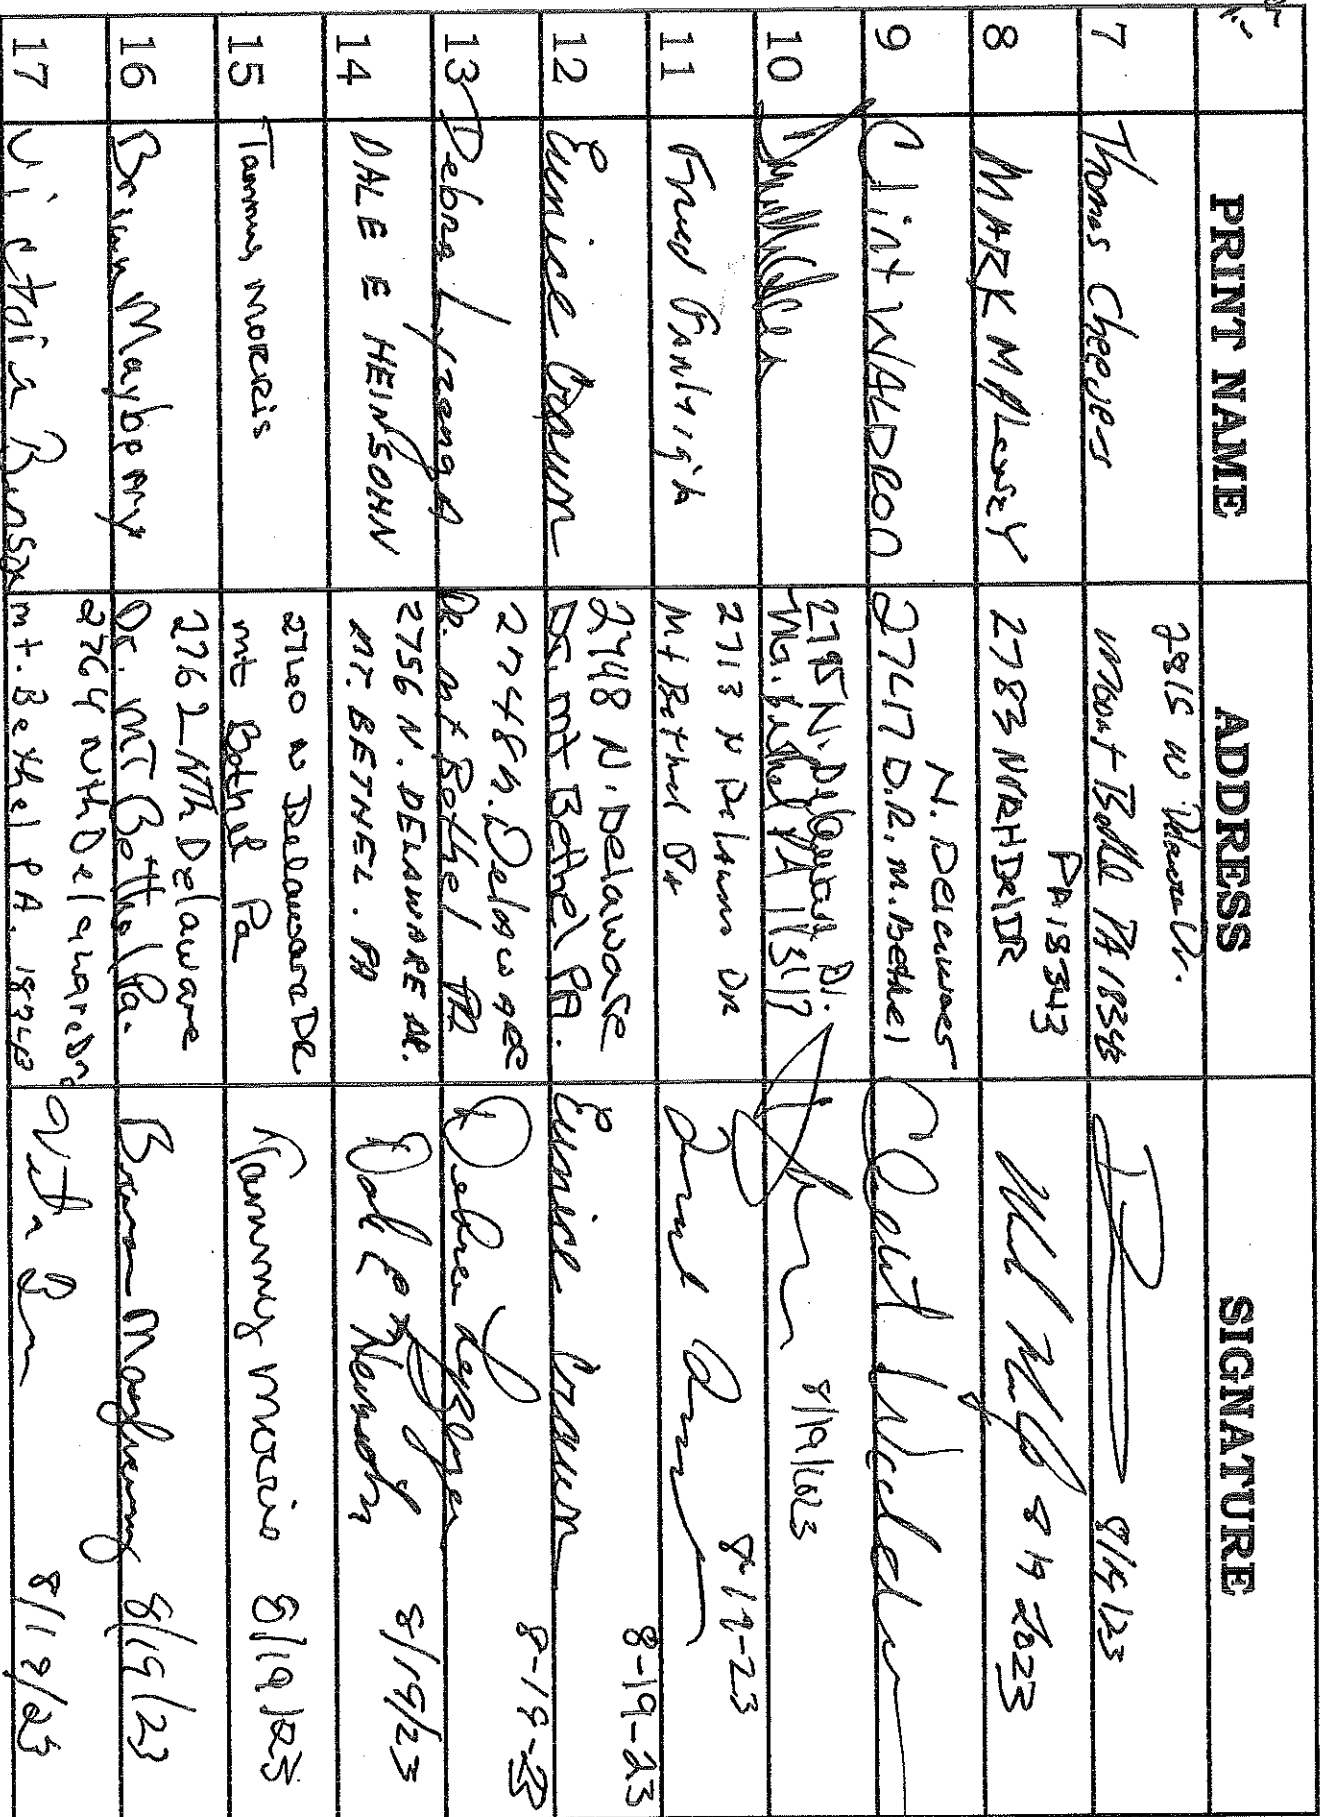 PRINT NAME ADDRESS SIGNATURE
7 Thomas Cheeses 2815 N Delaware Dr.
Mount Bethel PA 18343 8/19/23
8 MARK MALASEY 2783 NRHDelDR
PA18343 8 19 2023
9 Clint WALDRON N. Delawares
2747 D.R. M. Bethel Clint Waldron
10 2795 N. Delaware Dr.
Mt. bethel PA 8/19/2023
11 Fred 2713 N Delaware Dr
Mt Bethel Pa Fred 8-19-23
12 Eunice Craun 2748 N. Delaware
Dr. mt Bethel PA. Eunice Craun 8-19-23
13 Debra Lyzenga 2748 N. Delaware
Dr. mt Bethel PA Debra Lyzenga 8-19-23
14 DALE E HEINSOHN 2756 N. DELAWARE DR.
MT. BETHEL. PA Dale E Heinsohn 8/19/23
15 Tammy MORRIS 2760 N Delaware DR
mt Bethel Pa Tammy Morris 8/19/23
16 Brian Mayberry 2762 Nth Delaware
Dr. MT Bethel Pa. Brian Mayberry 8/19/23
17 Victoria 2764 Nth Delaware Dr.
mt. Bethel PA. 18343 8/19/23